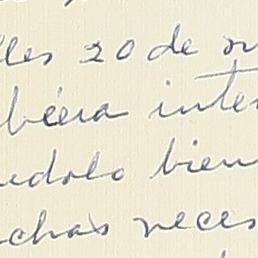 les 20 de n
béera inter
edolo bien
chas veces